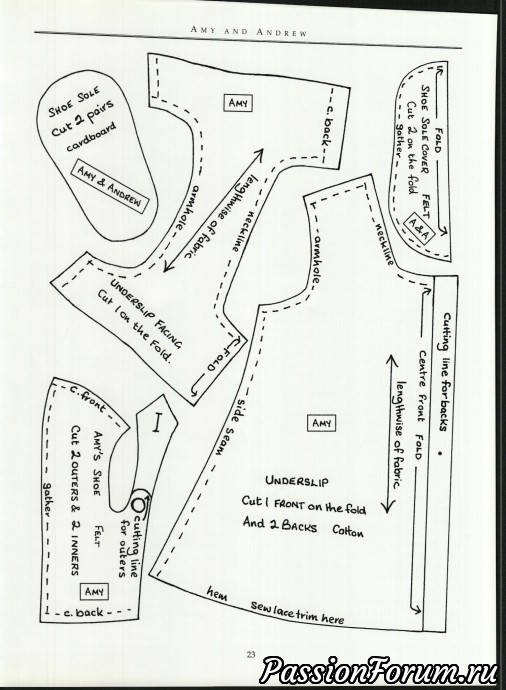 AMY AND ANDREW
SHOE SOLE
Cut 2 pairs
cardboard
AMY & ANDREW
AMY
c. back
armhole
lengthwise of fabric
neckline
UNDERSLIP FACING
Cut 1 on the Fold.
FOLD
FOLD
SHOE SOLE COVER FELT
Cut 2 on the fold
gather
A & A
armhole
neckline
side seam
Cutting line for backs
Centre Front FOLD
lengthwise of fabric
AMY
UNDERSLIP
Cut 1 FRONT on the fold
And 2 BACKS Cotton
hem
sew lace trim here
c. front
I
AMY'S SHOE FELT
Cut 2 OUTERS & 2 INNERS
gather
cutting line
for outers
AMY
c. back
23
PassionForum.ru